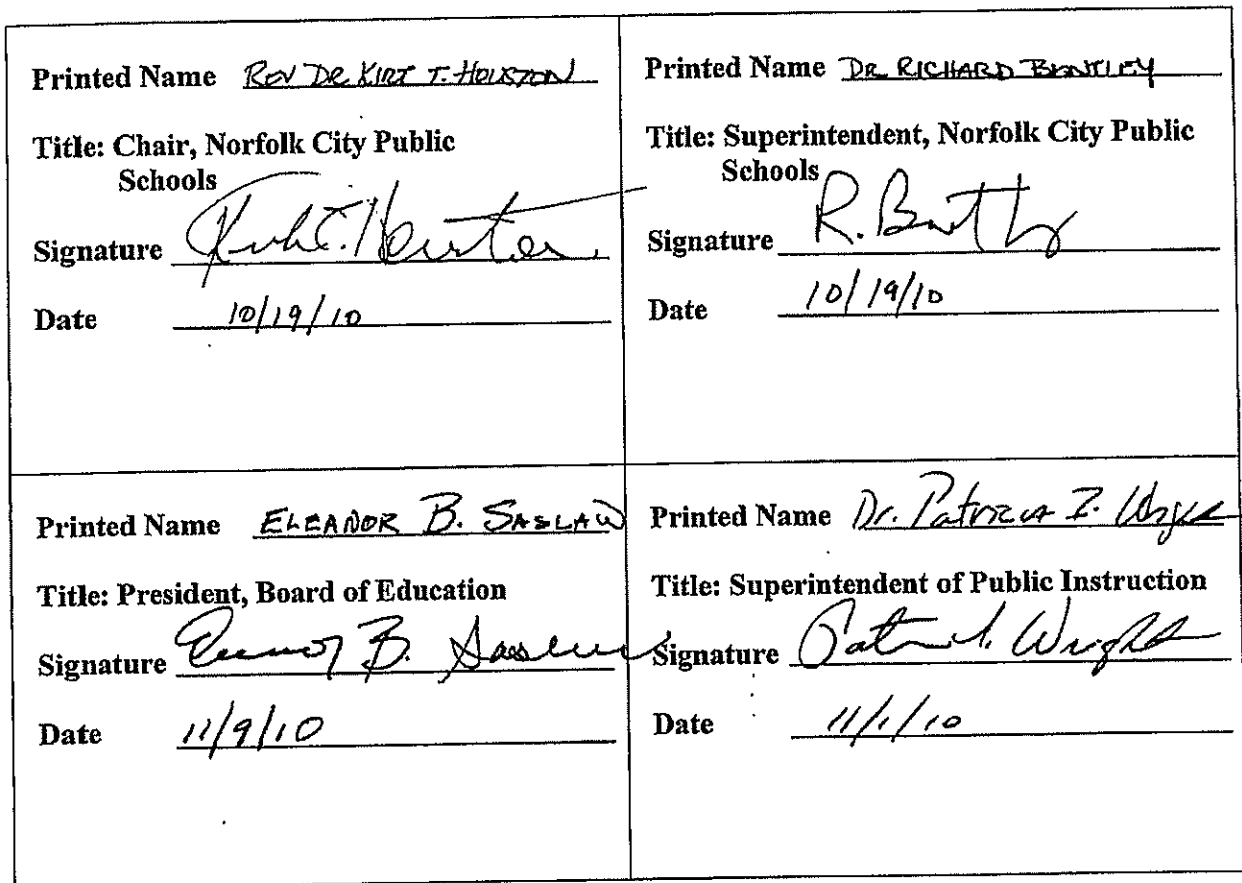 Printed Name REV DR. KIRT T. HOUSTON
Title: Chair, Norfolk City Public
Schools
Signature
Date 10/19/10
Printed Name DR RICHARD BENTLEY
Title: Superintendent, Norfolk City Public
Schools
Signature R. Bentley
Date 10/19/10
Printed Name ELEANOR B. SASLAW
Title: President, Board of Education
Signature Eleanor B. Saslaw
Date 11/9/10
Printed Name Dr. Patricia I. Wright
Title: Superintendent of Public Instruction
Signature Patricia I. Wright
Date 11/1/10